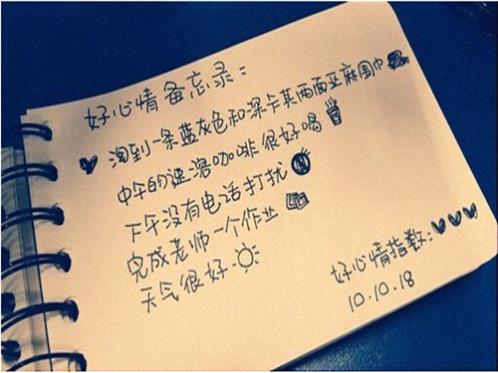 好心情备忘录:
淘到一条蓝灰色和深卡其两面亚麻围巾
中午的速溶咖啡很好喝
下午没有电话打扰
完成老师一个作业
天气很好
好心情指数:
10.10.18